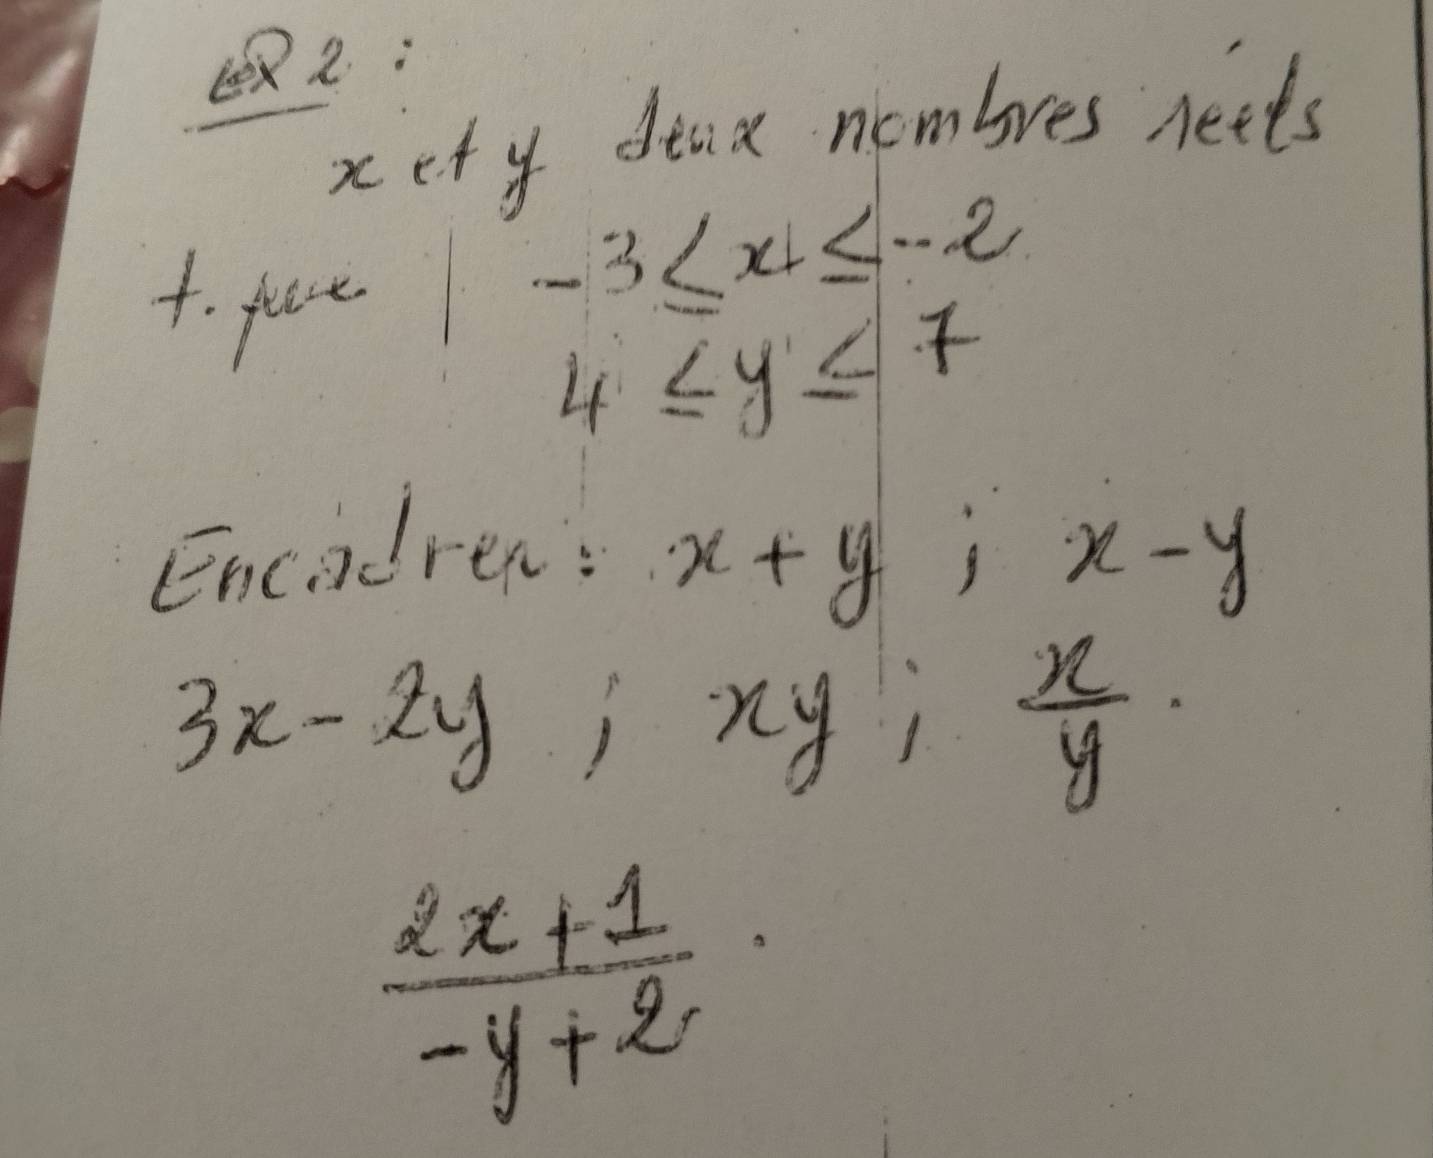 EX 2 :
x et y deux nombres réels
t. que | -3 ≤ x ≤ -2
4 ≤ y ≤ 7
Encadrer : x + y ; x - y
3x - 2y ; xy ; x/y .
(2x + 1)/(-y + 2) .